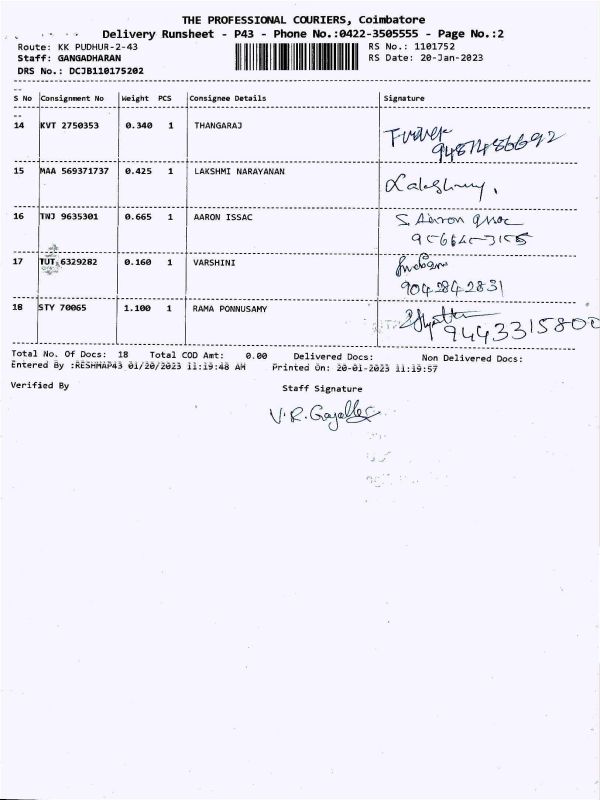 THE PROFESSIONAL COURIERS, Coimbatore
Delivery Runsheet - P43 - Phone No.:0422-3505555 - Page No.:2
Route: KK PUDHUR-2-43 RS No.: 1101752
Staff: GANGADHARAN RS Date: 20-Jan-2023
DRS No.: DCJB110175202
S No Consignment No Weight PCS Consignee Details Signature
14 KVT 2750353 0.340 1 THANGARAJ
15 MAA 569371737 0.425 1 LAKSHMI NARAYANAN
16 TNJ 9635301 0.665 1 AARON ISSAC S. Aaron
17 TUT 6329282 0.160 1 VARSHINI
9042842831
18 STY 70065 1.100 1 RAMA PONNUSAMY
9443315800
Total No. Of Docs: 18 Total COD Amt: 0.00 Delivered Docs: Non Delivered Docs:
Entered By :RESHMAP43 01/20/2023 11:19:48 AM Printed On: 20-01-2023 11:19:57
Verified By Staff Signature
V.R.